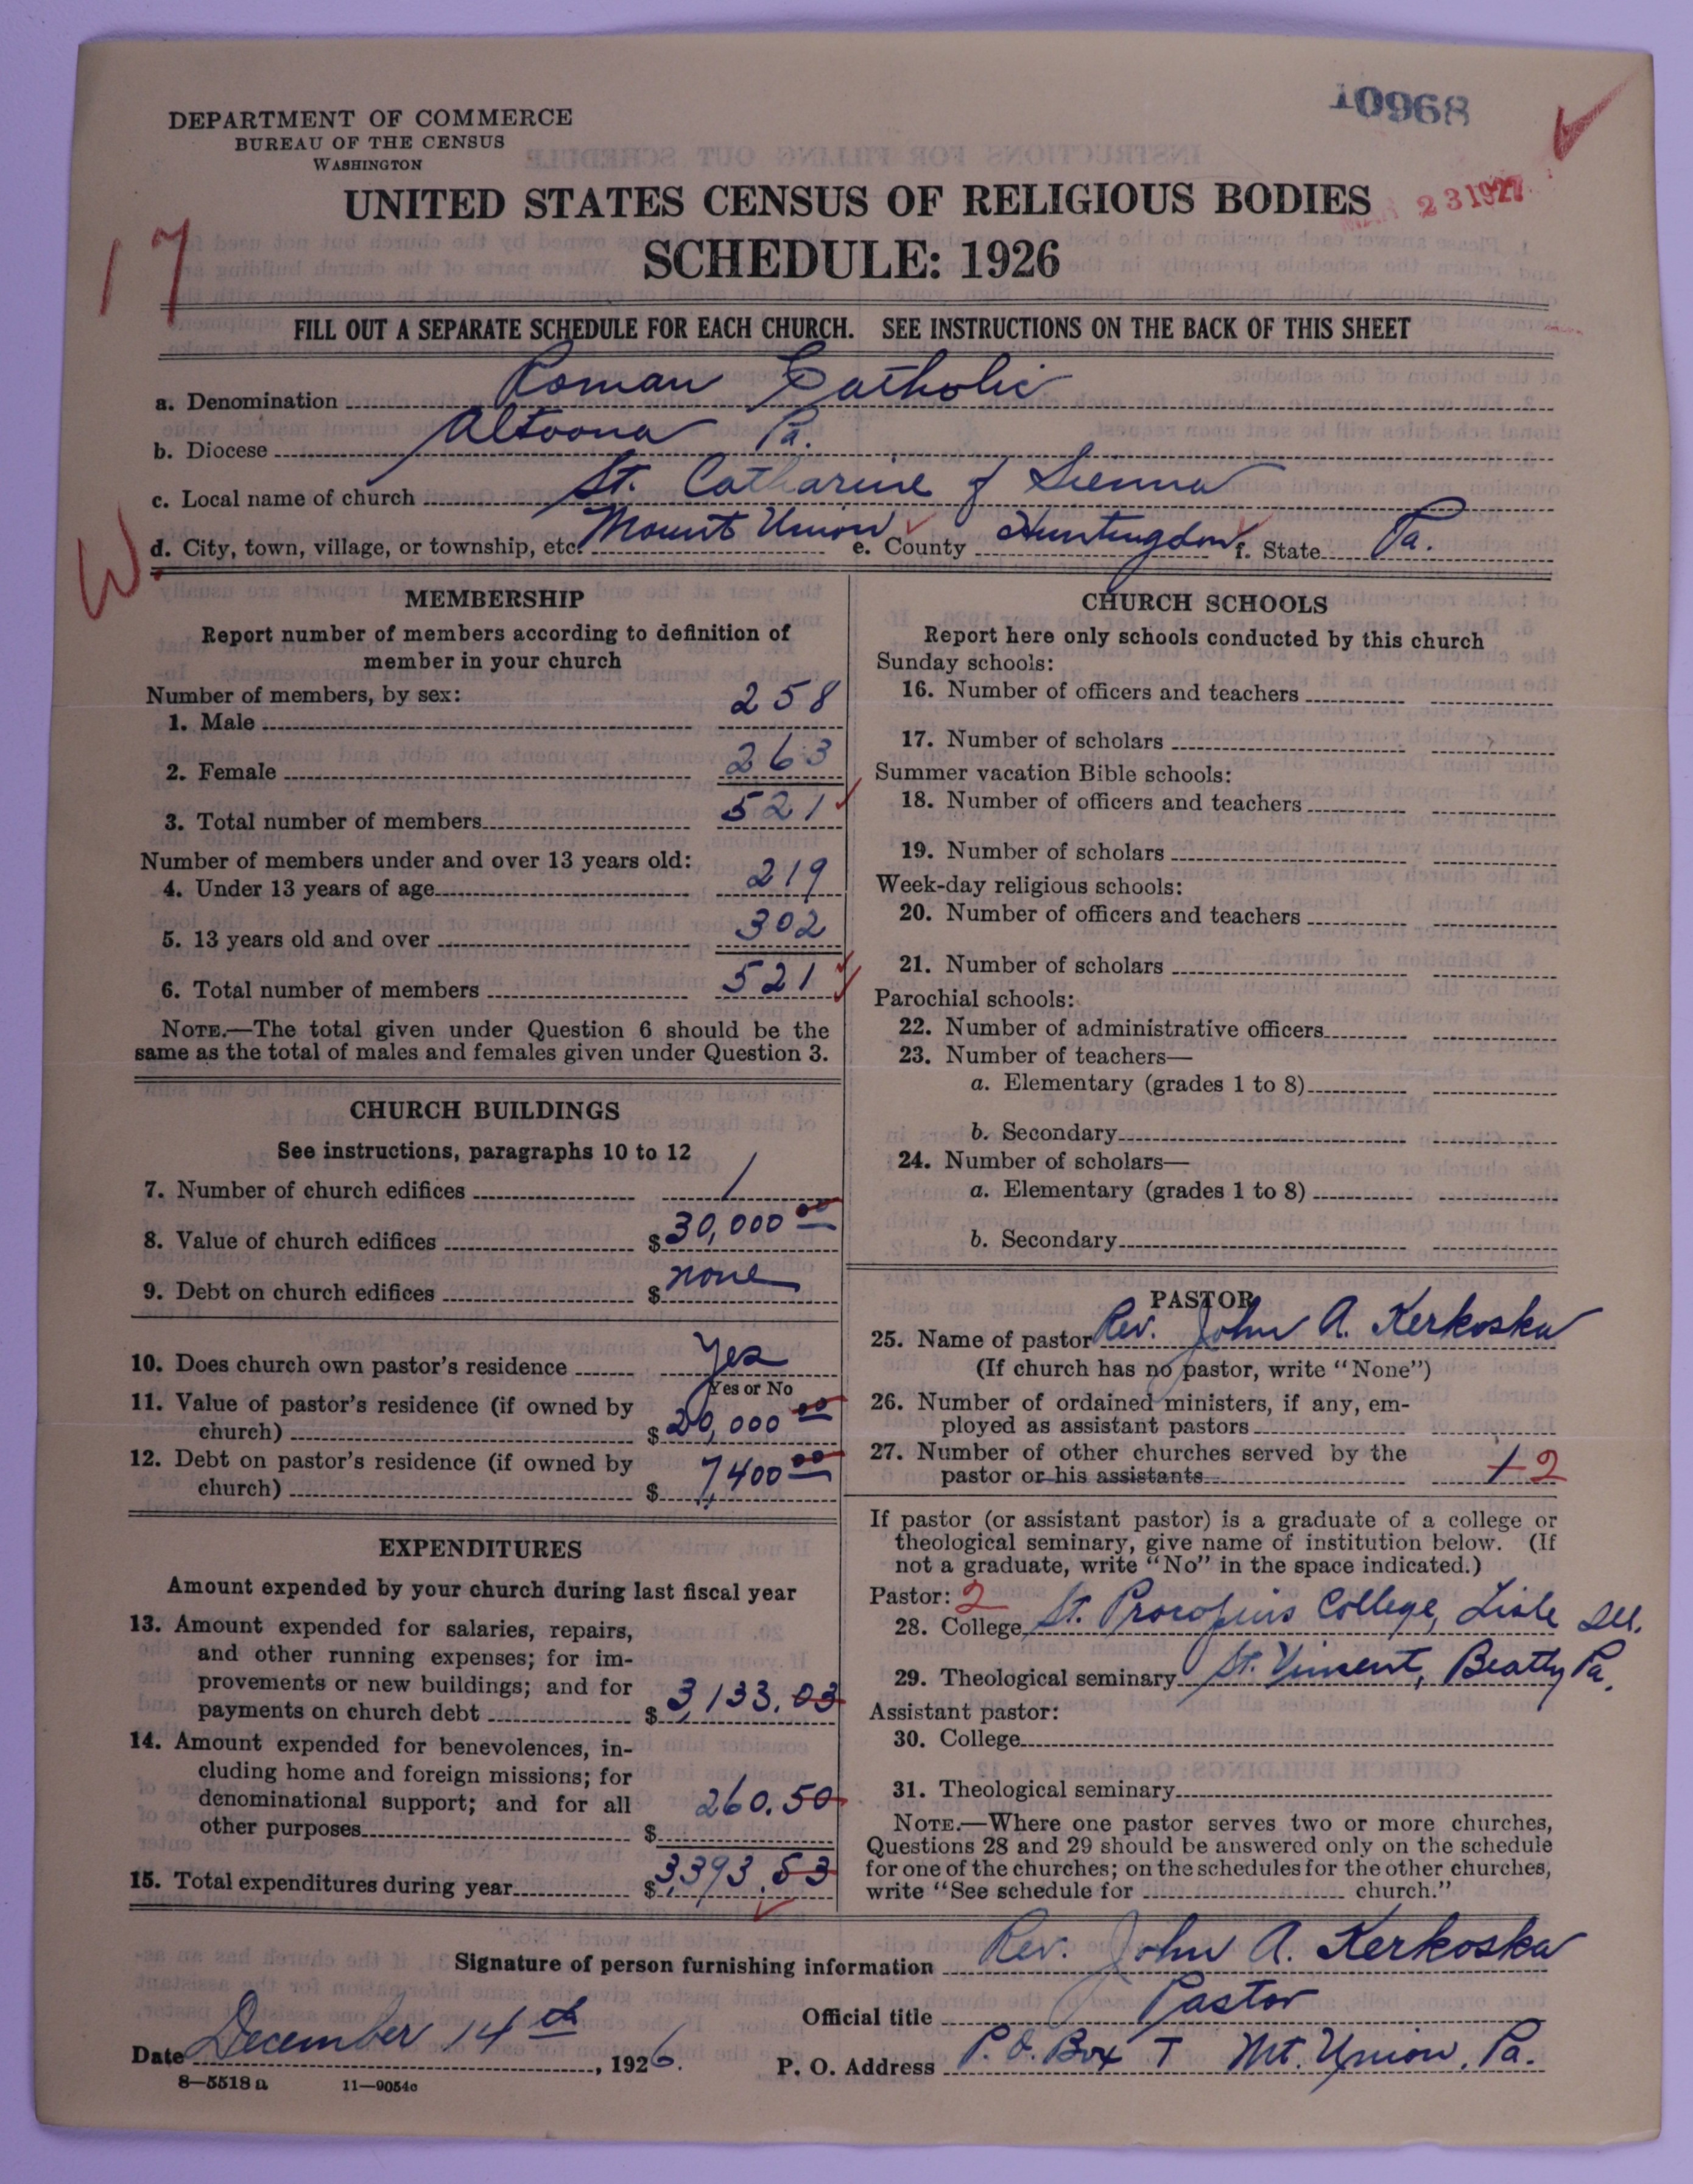 10968
DEPARTMENT OF COMMERCE
BUREAU OF THE CENSUS
WASHINGTON
UNITED STATES CENSUS OF RELIGIOUS BODIES
MAR 23 1927
SCHEDULE: 1926
17
FILL OUT A SEPARATE SCHEDULE FOR EACH CHURCH. SEE INSTRUCTIONS ON THE BACK OF THIS SHEET
a. Denomination Roman Catholic
b. Diocese Altoona Pa.
c. Local name of church St. Catharine of Sienna
W
d. City, town, village, or township, etc. Mount Union e. County Huntingdon f. State Pa.
MEMBERSHIP
Report number of members according to definition of
member in your church
Number of members, by sex:
1. Male 258
2. Female 263
3. Total number of members 521
Number of members under and over 13 years old:
4. Under 13 years of age 219
5. 13 years old and over 302
6. Total number of members 521
NOTE.—The total given under Question 6 should be the
same as the total of males and females given under Question 3.
CHURCH BUILDINGS
See instructions, paragraphs 10 to 12
7. Number of church edifices 1
8. Value of church edifices $30,000 00
9. Debt on church edifices $ none
10. Does church own pastor's residence Yes
Yes or No
11. Value of pastor's residence (if owned by
church) $20,000 00
12. Debt on pastor's residence (if owned by
church) $ 7,400 00
EXPENDITURES
Amount expended by your church during last fiscal year
13. Amount expended for salaries, repairs,
and other running expenses; for im-
provements or new buildings; and for
payments on church debt $3,133.03
14. Amount expended for benevolences, in-
cluding home and foreign missions; for
denominational support; and for all
other purposes $ 260.50
15. Total expenditures during year $3,393.53
CHURCH SCHOOLS
Report here only schools conducted by this church
Sunday schools:
16. Number of officers and teachers
17. Number of scholars
Summer vacation Bible schools:
18. Number of officers and teachers
19. Number of scholars
Week-day religious schools:
20. Number of officers and teachers
21. Number of scholars
Parochial schools:
22. Number of administrative officers
23. Number of teachers—
a. Elementary (grades 1 to 8)
b. Secondary
24. Number of scholars—
a. Elementary (grades 1 to 8)
b. Secondary
PASTOR
25. Name of pastor Rev. John A. Kerkoska
(If church has no pastor, write "None")
26. Number of ordained ministers, if any, em-
ployed as assistant pastors
27. Number of other churches served by the
pastor or his assistants 1 2
If pastor (or assistant pastor) is a graduate of a college or
theological seminary, give name of institution below. (If
not a graduate, write "No" in the space indicated.)
Pastor: 2
28. College St. Procopius College, Lisle Ill.
29. Theological seminary St. Vincent, Beatty Pa.
Assistant pastor:
30. College
31. Theological seminary
NOTE.—Where one pastor serves two or more churches,
Questions 28 and 29 should be answered only on the schedule
for one of the churches; on the schedules for the other churches,
write "See schedule for church."
Signature of person furnishing information Rev. John A. Kerkoska
Official title Pastor
Date December 14th, 1926. P. O. Address P.O. Box T Mt. Union, Pa.
8—5518 a 11—9054c